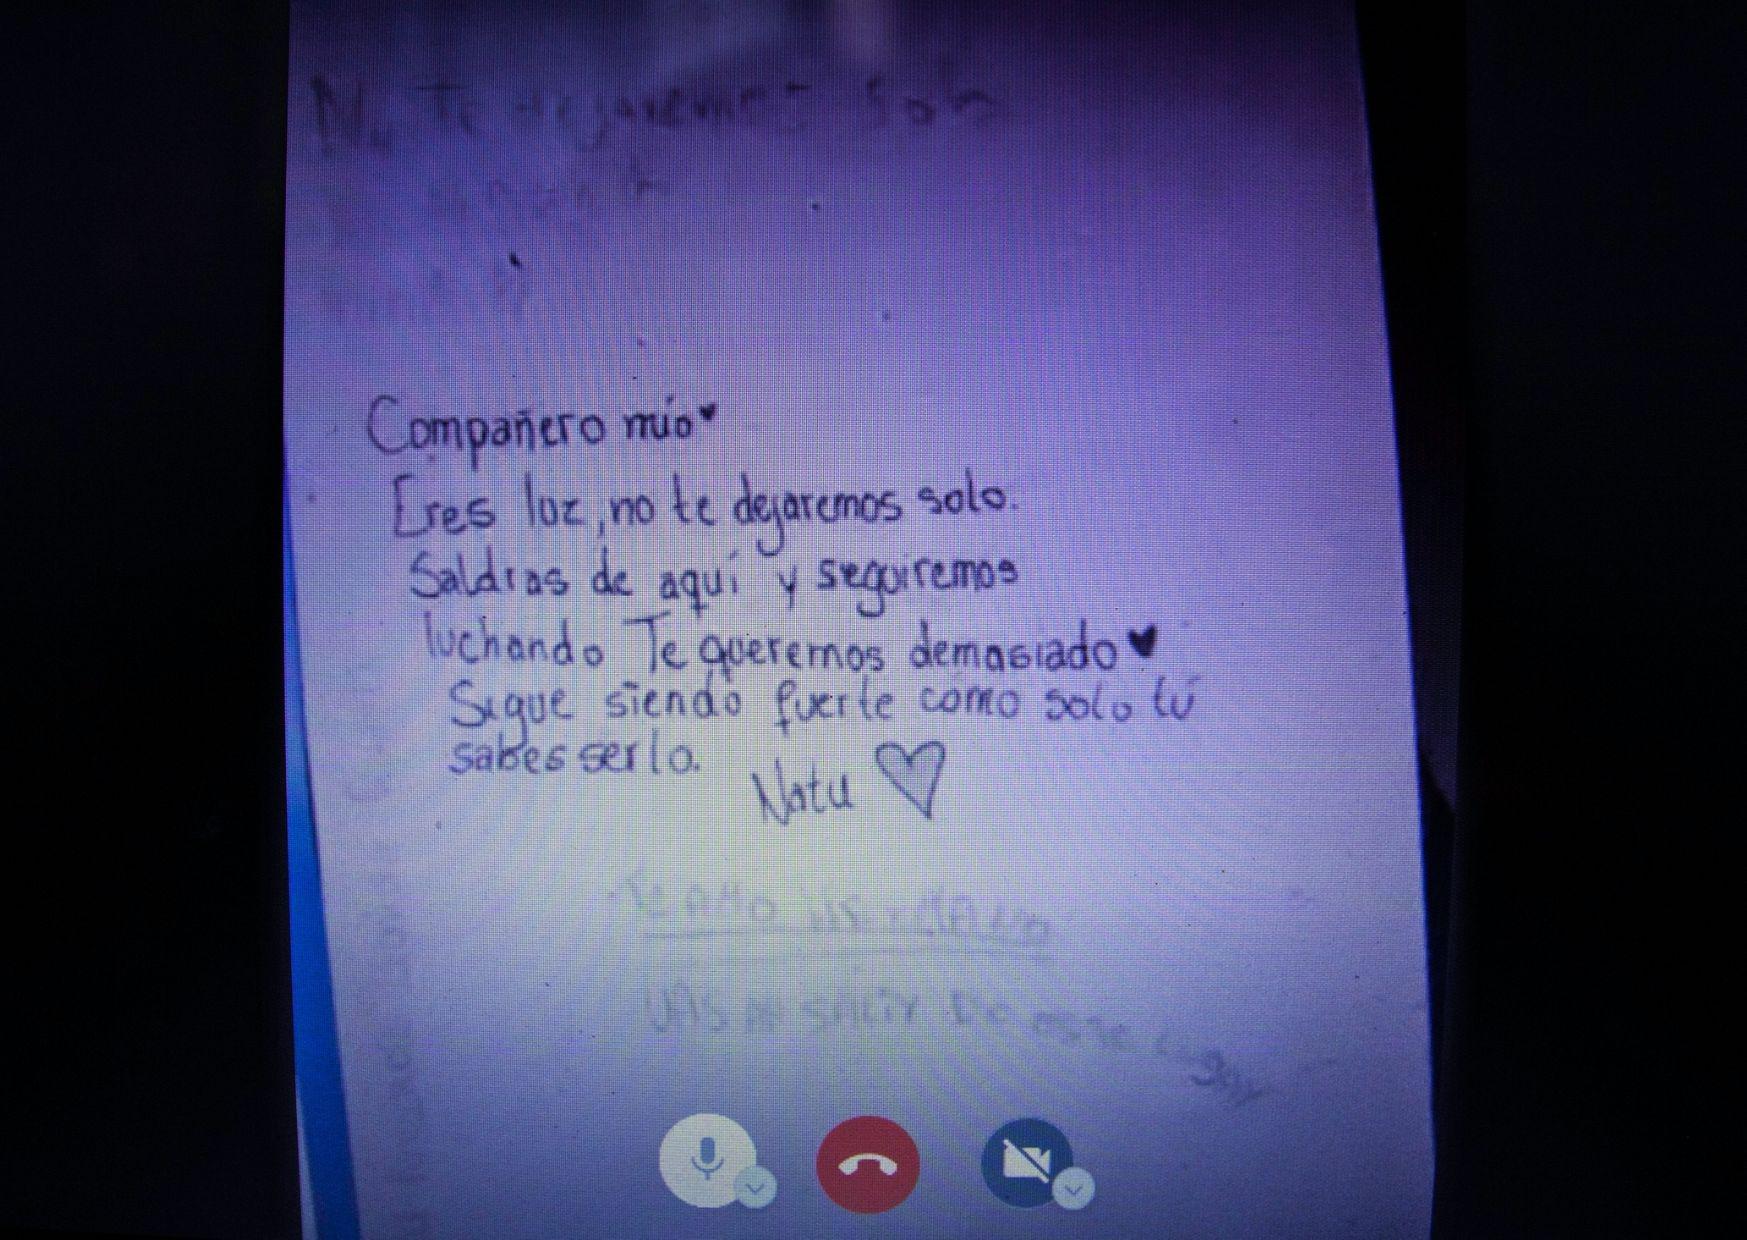 No te dejaremos
Compañero mío
Eres luz, no te dejaremos solo.
Saldras de aquí y seguiremos
luchando Te queremos demasiado
Sigue siendo fuerte como solo tú
sabes serlo.
Natu
Te amo
vas a salir de este lugar